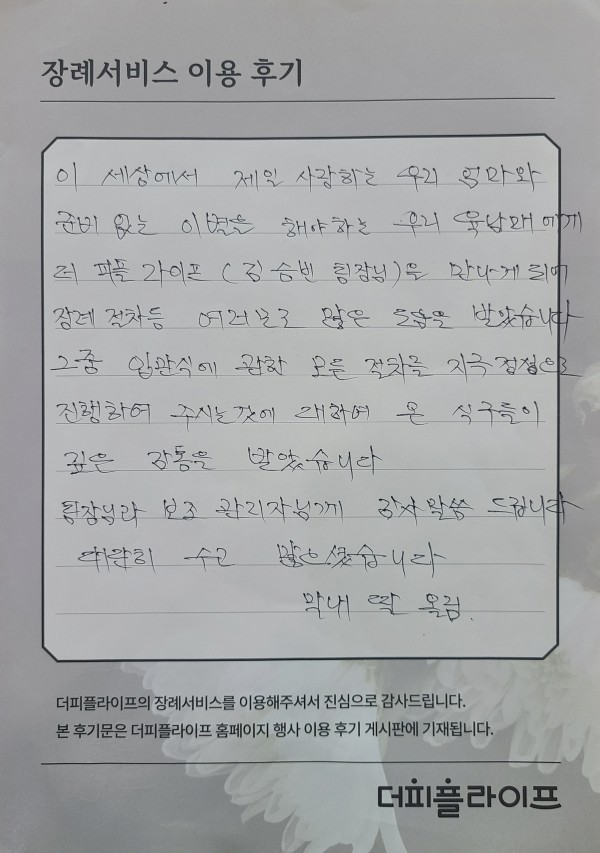 장례서비스 이용 후기
이 세상에서 제일 사랑하는 우리 엄마와
준비 없는 이별을 해야하는 우리 육남매에게
더 피플 라이프 (김승빈 팀장님)을 만나게 되어
장례 절차등 여러모로 많은 도움을 받았습니다
그중 입관식에 관한 모든 절차를 지극 정성으로
진행하여 주시는것에 대하여 온 식구들이
깊은 감동을 받았습니다
팀장님과 보조 관리자님께 감사 말씀 드립니다
대단히 수고 많으셨습니다
막내 딸 올림.
더피플라이프의 장례서비스를 이용해주셔서 진심으로 감사드립니다.
본 후기문은 더피플라이프 홈페이지 행사 이용 후기 게시판에 기재됩니다.
더피플라이프